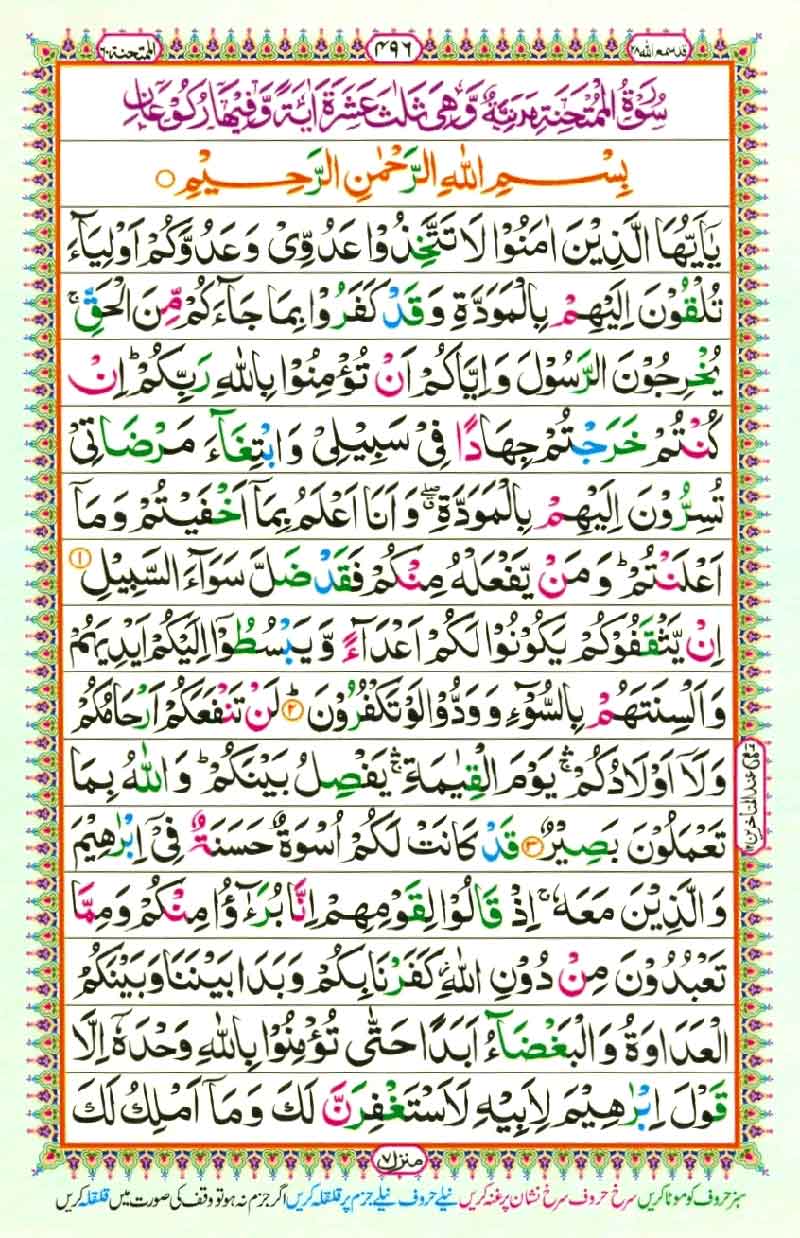 قد سمع الله ٢٨
٤٩٦
الممتحنة ٦٠
سُوْرَةُ الْمُمْتَحِنَةِ مَدَنِيَّةٌ وَّهِيَ ثَلٰثَ عَشْرَةَ اٰيَةً وَّفِيْهَا رُكُوْعَانِ
بِسْمِ اللّٰهِ الرَّحْمٰنِ الرَّحِيْمِ ۝
يٰۤاَيُّهَا الَّذِيْنَ اٰمَنُوْا لَا تَتَّخِذُوْا عَدُوِّيْ وَعَدُوَّكُمْ اَوْلِيَآءَ
تُلْقُوْنَ اِلَيْهِمْ بِالْمَوَدَّةِ وَقَدْ كَفَرُوْا بِمَا جَآءَكُمْ مِّنَ الْحَقِّ ۚ
يُخْرِجُوْنَ الرَّسُوْلَ وَاِيَّاكُمْ اَنْ تُؤْمِنُوْا بِاللّٰهِ رَبِّكُمْ ؕ اِنْ
كُنْتُمْ خَرَجْتُمْ جِهَادًا فِيْ سَبِيْلِيْ وَابْتِغَآءَ مَرْضَاتِيْ
تُسِرُّوْنَ اِلَيْهِمْ بِالْمَوَدَّةِ ۖۗ وَاَنَا اَعْلَمُ بِمَاۤ اَخْفَيْتُمْ وَمَاۤ
اَعْلَنْتُمْ ؕ وَمَنْ يَّفْعَلْهُ مِنْكُمْ فَقَدْ ضَلَّ سَوَآءَ السَّبِيْلِ ١
اِنْ يَّثْقَفُوْكُمْ يَكُوْنُوْا لَكُمْ اَعْدَآءً وَّيَبْسُطُوْۤا اِلَيْكُمْ اَيْدِيَهُمْ
وَاَلْسِنَتَهُمْ بِالسُّوْٓءِ وَوَدُّوْا لَوْ تَكْفُرُوْنَ ؕ ٢ لَنْ تَنْفَعَكُمْ اَرْحَامُكُمْ
وَلَاۤ اَوْلَادُكُمْ ۛۚ يَوْمَ الْقِيٰمَةِ ۛۚ يَفْصِلُ بَيْنَكُمْ ؕ وَاللّٰهُ بِمَا
تَعْمَلُوْنَ بَصِيْرٌ ٣ قَدْ كَانَتْ لَكُمْ اُسْوَةٌ حَسَنَةٌ فِيْۤ اِبْرٰهِيْمَ
وَالَّذِيْنَ مَعَهٗ ۚ اِذْ قَالُوْا لِقَوْمِهِمْ اِنَّا بُرَءٰٓؤُا مِنْكُمْ وَمِمَّا
تَعْبُدُوْنَ مِنْ دُوْنِ اللّٰهِ ؗ كَفَرْنَا بِكُمْ وَبَدَا بَيْنَنَا وَبَيْنَكُمُ
الْعَدَاوَةُ وَالْبَغْضَآءُ اَبَدًا حَتّٰى تُؤْمِنُوْا بِاللّٰهِ وَحْدَهٗۤ اِلَّا
قَوْلَ اِبْرٰهِيْمَ لِاَبِيْهِ لَاَسْتَغْفِرَنَّ لَكَ وَمَاۤ اَمْلِكُ لَكَ
منزل ٧
سبز حروف کو موٹا کریں سرخ حروف سرخ نشان پر غنہ کریں نیلے حروف نیلے جزم پر قلقلہ کریں اگر جزم نہ ہو تو وقف کی صورت میں قلقلہ کریں